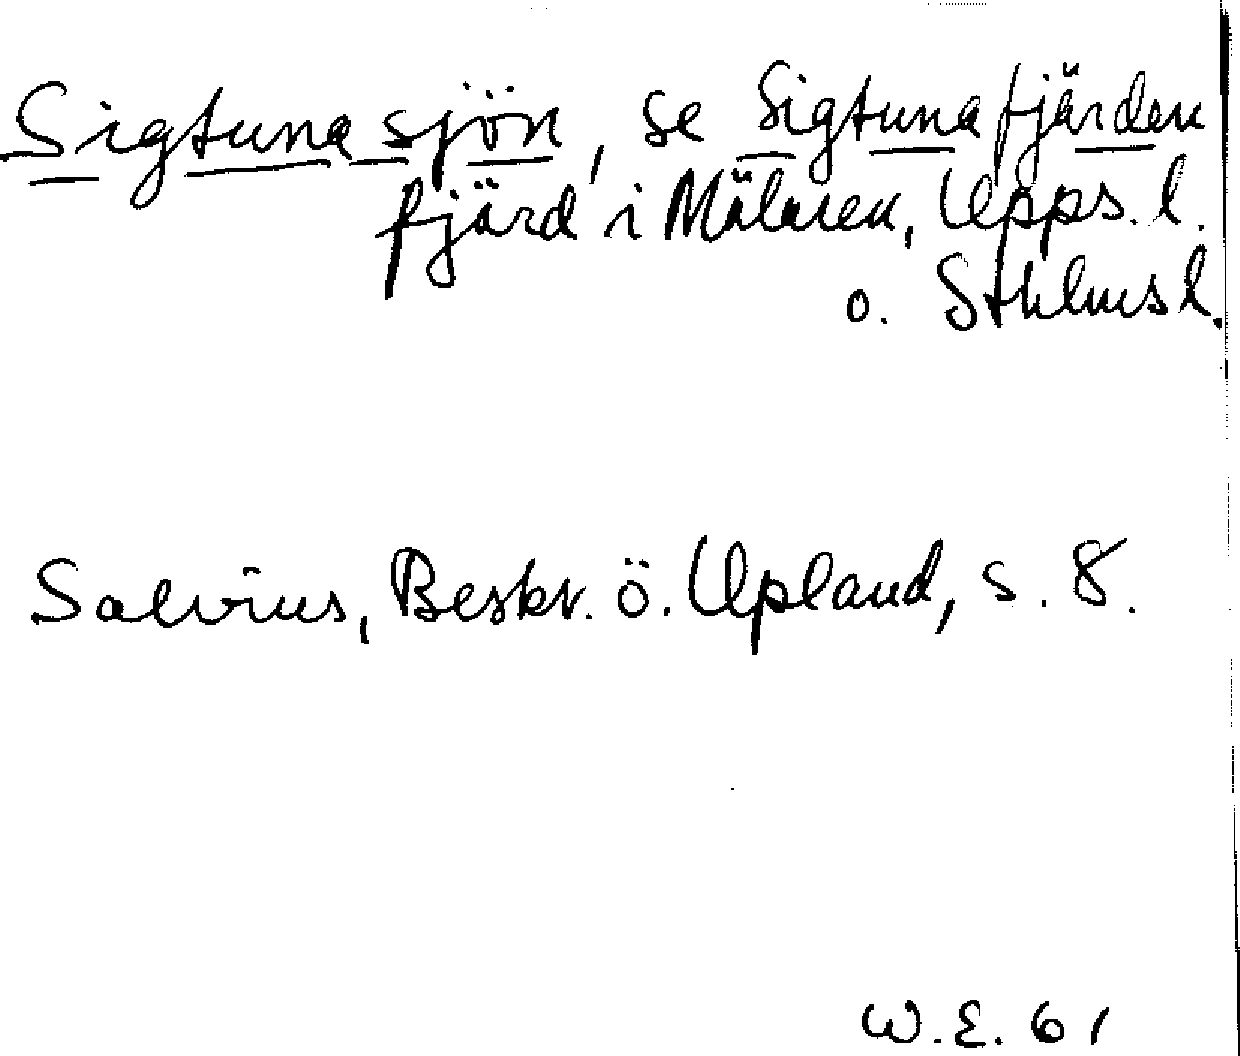 Sigtuna sjön, se Sigtunafjärden
fjärd i Mälaren, Upps. l.
o. Sthlms l.
Salvius, Beskr. ö. Upland, s. 8.
W.E. 61